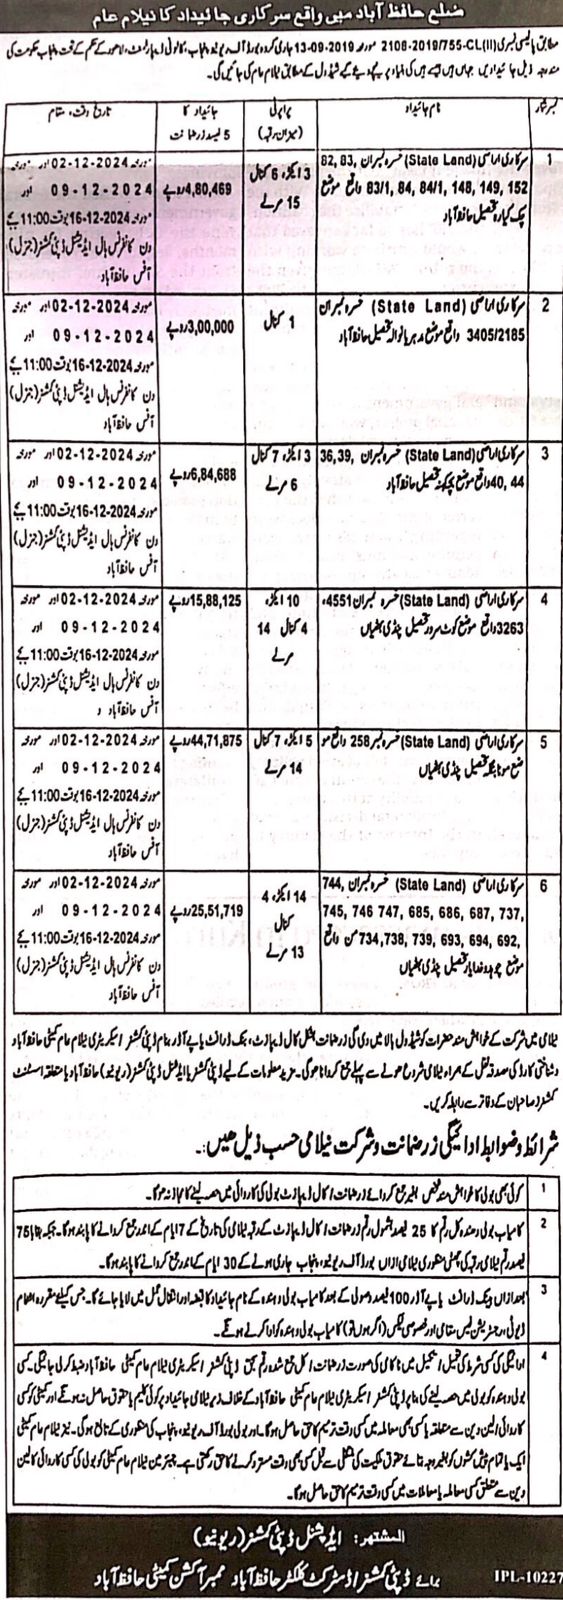 ضلع حافظ آباد میں واقع سرکاری جائیداد کا نیلام عام
مطابق پالیسی نمبری 2108-2019/755-CL(II) مورخہ 13-09-2019 جاری کردہ بورڈ آف ریونیو، پنجاب، کالونی ڈیپارٹمنٹ، لاہور کے حکم کے تحت پنجاب حکومت کی
مندرجہ ذیل جائیدادیں، جہاں ہیں جیسے ہیں کی بنیاد پر پٹہ دینے کے شیڈول کے مطابق نیلام عام کی جائیں گی۔
نمبر شمار
نام جائیداد
پراپرٹی (میزان رقبہ)
جائیداد کا 5 فیصد زرضمانت
تاریخ، وقت، مقام
1
سرکاری اراضی (State Land) خسرہ نمبران 82, 83,
83/1, 84, 84/1, 148, 149, 152 واقع موضع
تحصیل حافظ آباد
3 ایکڑ، 6 کنال
15 مرلے
4,80,469 روپے
مورخہ 02-12-2024 اور مورخہ
09-12-2024 اور
مورخہ 16-12-2024 بوقت 11:00 بجے
دن کانفرنس ہال ایڈیشنل ڈپٹی کمشنر (جنرل)
آفس حافظ آباد
2
سرکاری اراضی (State Land) خسرہ نمبران
3405/2185 واقع موضع تحصیل حافظ آباد
1 کنال
3,00,000 روپے
مورخہ 02-12-2024 اور مورخہ
09-12-2024 اور
مورخہ 16-12-2024 بوقت 11:00 بجے
دن کانفرنس ہال ایڈیشنل ڈپٹی کمشنر (جنرل)
آفس حافظ آباد
3
سرکاری اراضی (State Land) خسرہ نمبران 36,39,
40, 44 واقع موضع تحصیل حافظ آباد
3 ایکڑ، 7 کنال
6 مرلے
6,84,688 روپے
مورخہ 02-12-2024 اور مورخہ
09-12-2024 اور
مورخہ 16-12-2024 بوقت 11:00 بجے
دن کانفرنس ہال ایڈیشنل ڈپٹی کمشنر (جنرل)
آفس حافظ آباد
4
سرکاری اراضی (State Land) خسرہ نمبران 4551،
3263 واقع موضع کوٹ سرور تحصیل پنڈی بھٹیاں
10 ایکڑ،
4 کنال 14
مرلے
15,88,125 روپے
مورخہ 02-12-2024 اور مورخہ
09-12-2024 اور
مورخہ 16-12-2024 بوقت 11:00 بجے
دن کانفرنس ہال ایڈیشنل ڈپٹی کمشنر (جنرل)
آفس حافظ آباد د
5
سرکاری اراضی (State Land) خسرہ نمبر 258 واقع مو
ضع تحصیل پنڈی بھٹیاں
5 ایکڑ، 7 کنال
14 مرلے
44,71,875 روپے
مورخہ 02-12-2024 اور مورخہ
09-12-2024 اور
مورخہ 16-12-2024 بوقت 11:00 بجے
دن کانفرنس ہال ایڈیشنل ڈپٹی کمشنر (جنرل)
آفس حافظ آباد
6
سرکاری اراضی (State Land) خسرہ نمبران 744,
745, 746 747, 685, 686, 687, 737,
734,738, 739, 693, 694, 692, واقع
موضع تحصیل پنڈی بھٹیاں
14 ایکڑ، 4
کنال
13 مرلے
25,51,719 روپے
مورخہ 02-12-2024 اور مورخہ
09-12-2024 اور
مورخہ 16-12-2024 بوقت 11:00 بجے
دن کانفرنس ہال ایڈیشنل ڈپٹی کمشنر (جنرل)
آفس حافظ آباد
نیلامی میں شرکت کے خواہش مند حضرات کو شیڈول بالا میں دی گئی زرضمانت بشکل کال ڈیپازٹ، بنک ڈرافٹ یا پے آرڈر بنام ڈپٹی کمشنر / سیکریٹری نیلام عام کمیٹی حافظ آباد
و شناختی کارڈ کی مصدقہ نقل کے ہمراہ نیلامی شروع ہونے سے پہلے جمع کروانا ہوگی۔ مزید معلومات کے لیے ڈپٹی کمشنر یا ایڈیشنل ڈپٹی کمشنر (ریونیو) حافظ آباد یا متعلقہ اسسٹنٹ
کمشنر صاحبان کے دفاتر سے رابطہ کریں۔
شرائط و ضوابط ادائیگی زرضمانت و شرکت نیلامی حسب ذیل ھیں:۔
1
کوئی بھی بولی کا خواہش مند شخص بغیر جمع کروائے زرضمانت / کال ڈیپازٹ بولی کی کاروائی میں حصہ لینے کا مجاز نہ ہوگا۔
2
کامیاب بولی دہندہ کل رقم کا 25 فیصد بشمول رقم زرضمانت / کال ڈیپازٹ کے رقبہ نیلامی کی تاریخ کے 7 ایام کے اندر جمع کروانے کا پابند ہوگا۔ جبکہ بقایا 75
فیصد رقم نیلامی رقبہ کی چٹھی منظوری نیلامی ازاں بورڈ آف ریونیو، پنجاب جاری ہونے کے 30 ایام کے اندر جمع کروانے کا پابند ہوگا۔
3
بعد ازاں بینک ڈرافٹ یا پے آرڈر 100 فیصد وصولی کے بعد کامیاب بولی دہندہ کے نام جائیداد کا قبضہ اور انتقال عمل میں لایا جائے گا۔ جس کیلئے مقررہ اشٹام
ڈیوٹی، رجسٹریشن فیس مقامی اور خصوصی ٹیکس (اگر ہوں تو) کامیاب بولی دہندہ کو ادا کرنے ہونگے۔
4
ادائیگی کی کسی شرط کی قبل تکمیل میں ناکامی کی صورت زرضمانت / کل جمع شدہ رقم بحق ڈپٹی کمشنر / سیکریٹری نیلام عام کمیٹی حافظ آباد ضبط کر لی جائیگی۔ کسی
بولی دہندہ کو بولی میں حصہ لینے کی بنا پر ڈپٹی کمشنر / سیکریٹری نیلام عام کمیٹی حافظ آباد کے خلاف زیر نیلامی جائیداد پر کوئی کلیم یا حقوق حاصل نہ ہونگے اور کمیٹی کو کسی
کاروائی / لین دین سے متعلقہ یا کسی بھی معاملہ میں کسی وقت ترمیم کا حق حاصل ہوگا۔ اور بولی بورڈ آف ریونیو، پنجاب کی منظوری کے تابع ہوگی۔ نیز نیلام عام کمیٹی
ایک یا تمام پیش کشوں کو بغیر وجہ بتائے حقوق ملکیت کی منتقلی سے قبل کسی بھی وقت مسترد کرنے کا حق رکھتی ہے۔ چیئرمین نیلام عام کمیٹی کو بولی کی کسی کاروائی کا لین
دین سے متعلق کسی معاملہ یا معاملات میں کسی وقت ترمیم کا حق حاصل ہوگا۔
المشتهر: ایڈیشنل ڈپٹی کمشنر (ریونیو)
برائے ڈپٹی کمشنر / ڈسٹرکٹ کلکٹر حافظ آباد ممبر آکشن کمیٹی حافظ آباد
IPL-10227